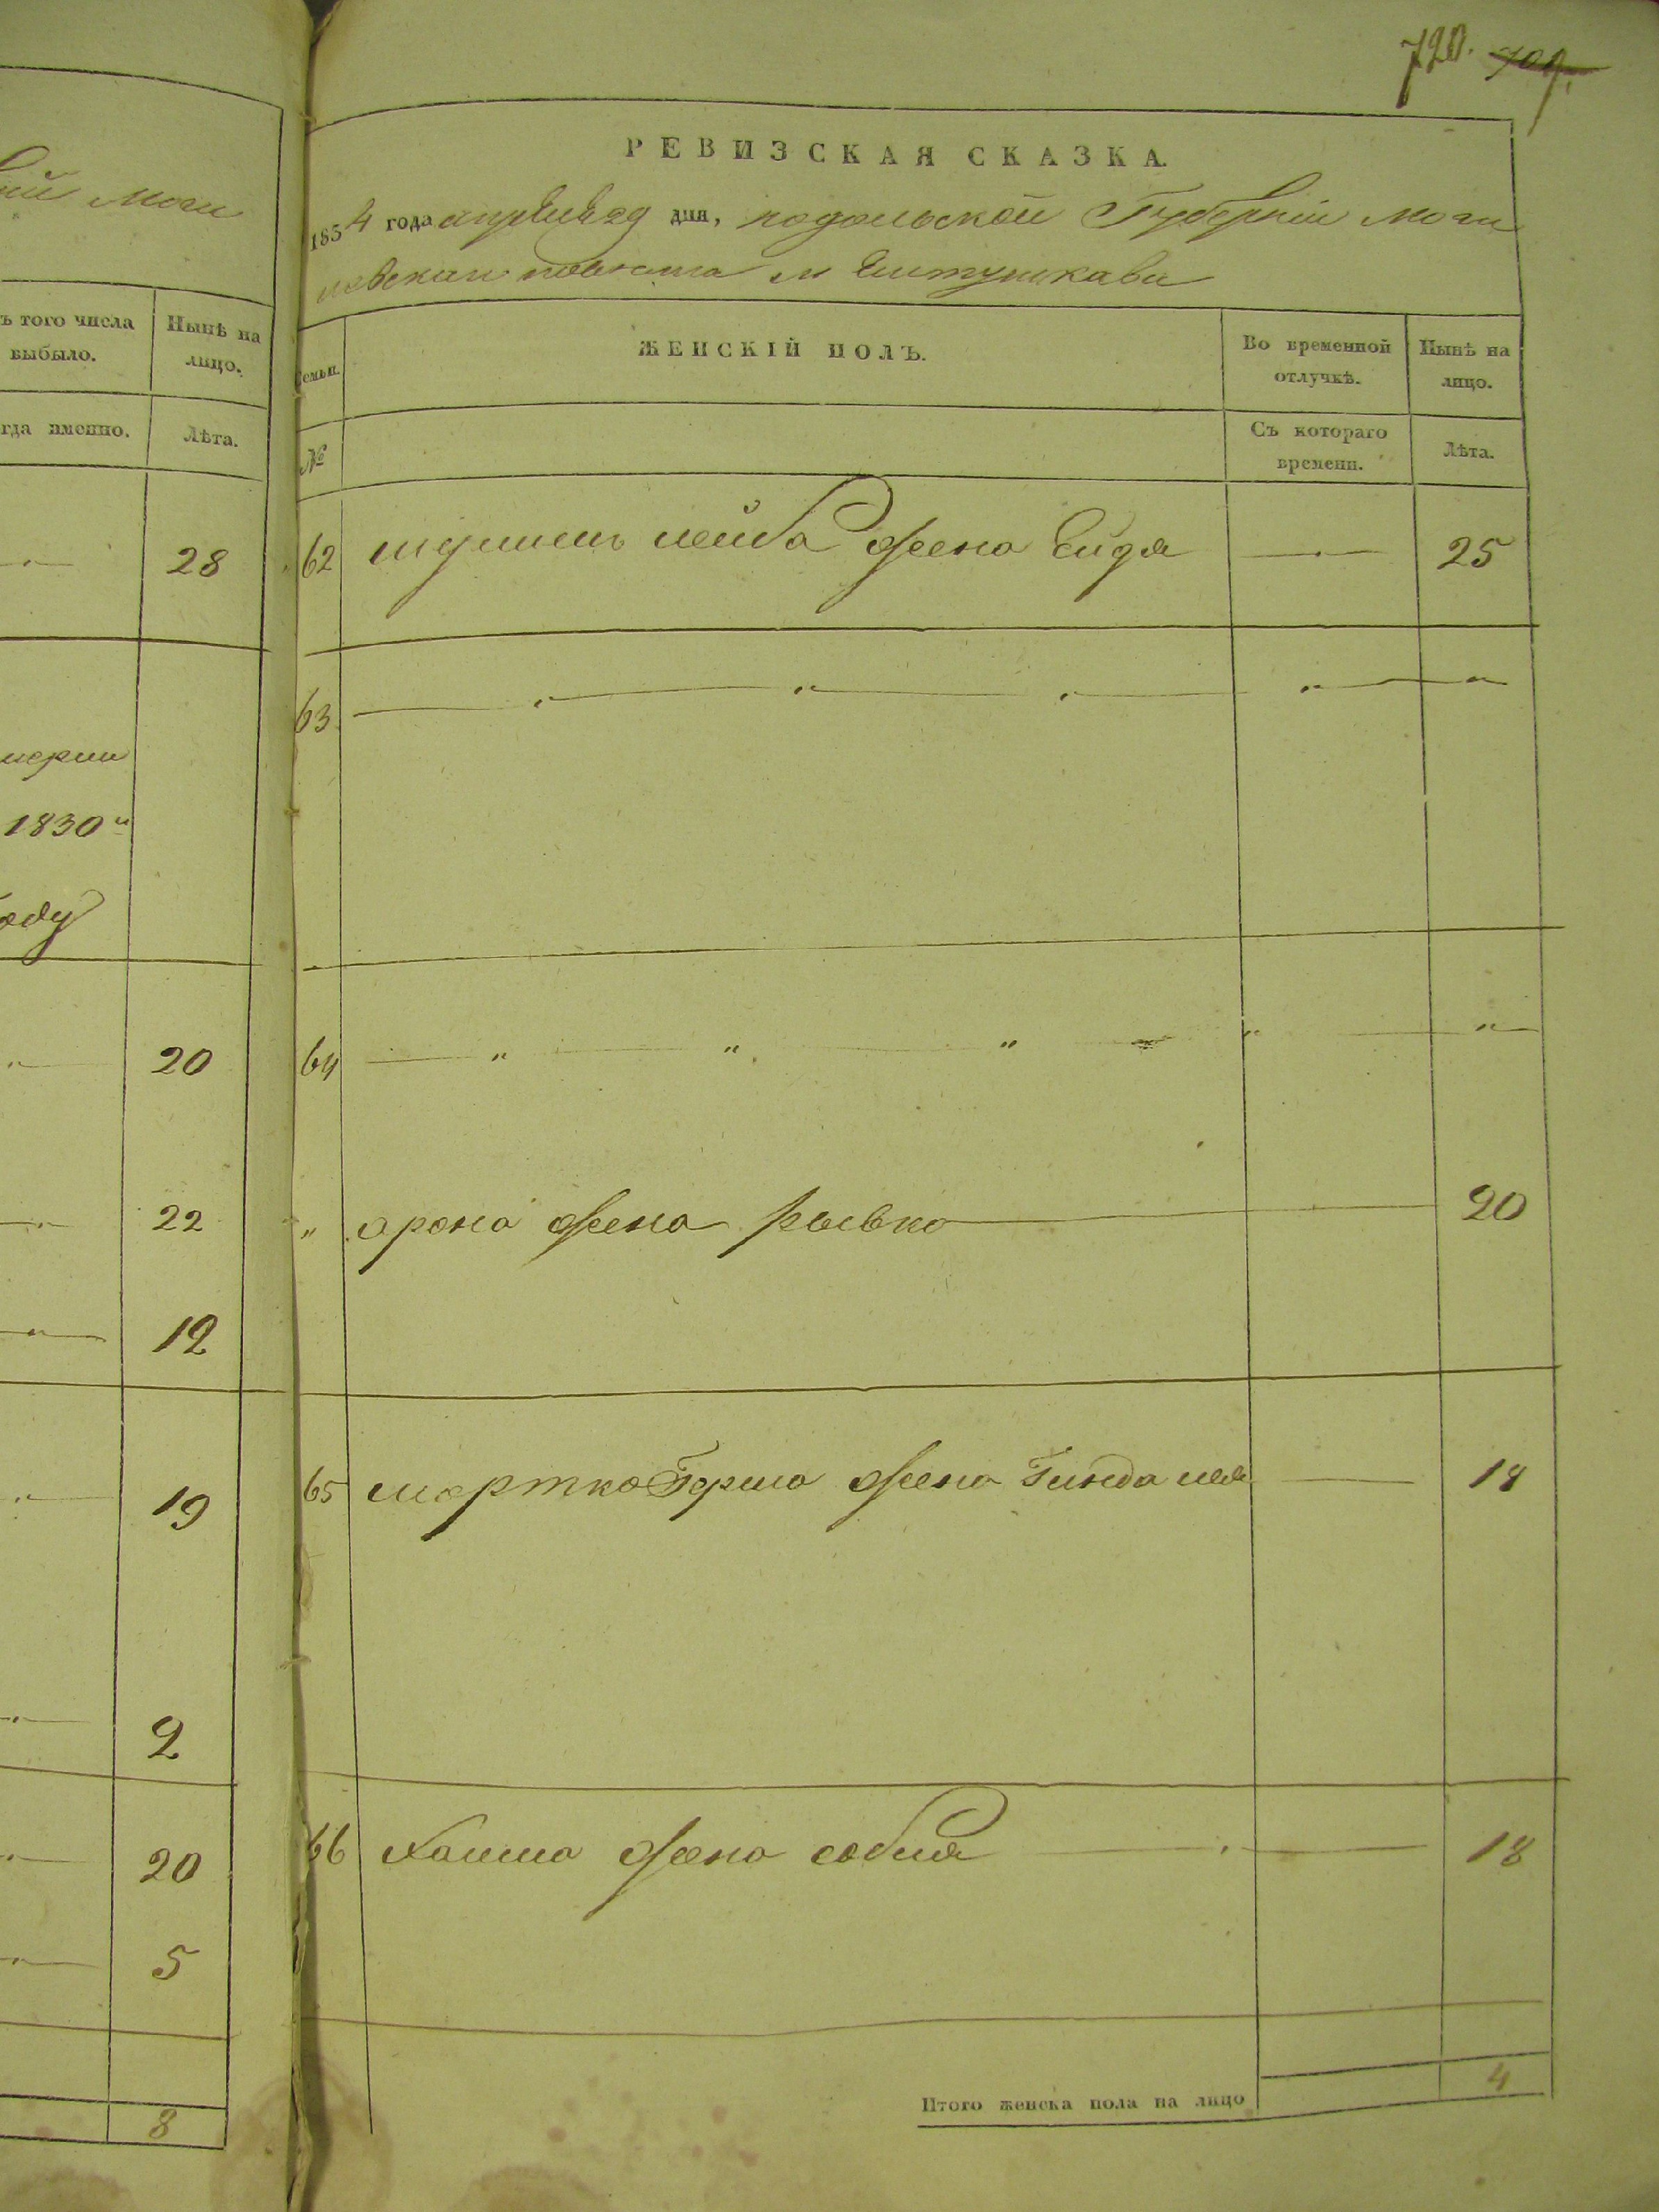 ій Моги
ъ того числа
выбыло.
Нынѣ на
лицо.
гда именно.
Лѣта.
28
1830
году
20
22
12
19
2
20
5
8
720. 709.
РЕВИЗСКАЯ СКАЗКА.
1854 года апреля 29 дня, подольской Губерніи Моги
левскаго повета м
ЖЕНСКІЙ ПОЛЪ.
Во временной
отлучкѣ.
Нынѣ на
лицо.
Семьи.
№
Съ котораго
времени.
Лѣта.
62 лейба жена Сидя 25
63
64
" арона жена Рывка 20
65 мортко Герша жена Гинда лея 18
66 Хаима жена собля 18
Итого женска пола на лицо 4